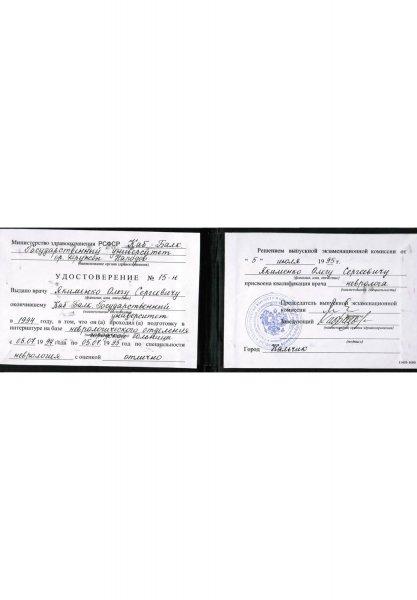 Министерство здравоохранения РСФСР Каб-Балк
Государственный Университет
ор. Дружбы Народов
(наименование органа здравоохранения)
УДОСТОВЕРЕНИЕ № 15-н
Выдано врачу Якименко Олегу Сергеевичу
(фамилия, имя, отчество)
окончившему Каб Балк. Государственный
университет
в 1994 году, в том, что он (а) проходил (а) подготовку в
интернатуре на базе неврологического отделения
больница
с 05.07 1994 года по 05.07. по специальности
неврология с оценкой отлично
Решением выпускной экзаменационной комиссии от
" 5 " июля 1995 г.
Якименко Олегу Сергеевичу
(фамилия, имя, отчество)
присвоена квалификация врача невролога
(наименование специальности)
Председатель выпускной экзаменационной
комиссии
Заведующий
(наименование органа здравоохранения)
(подпись)
Город Нальчик